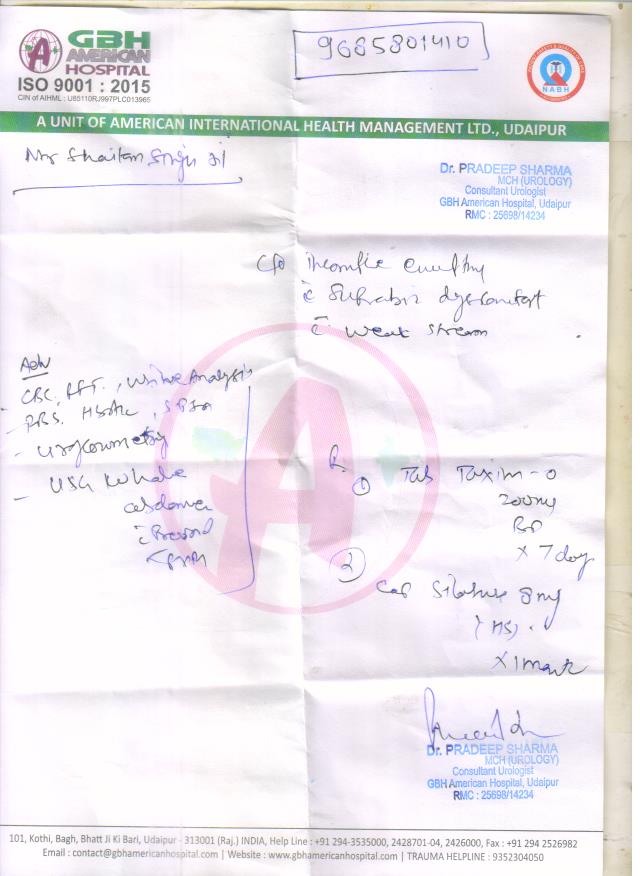 GBH
AMERICAN
HOSPITAL
ISO 9001 : 2015
CIN of AIHML : U85110RJ997PLC013965
9685801410
NABH
A UNIT OF AMERICAN INTERNATIONAL HEALTH MANAGEMENT LTD., UDAIPUR
Mr Shaitan Singh Ji
Dr. PRADEEP SHARMA
MCH (UROLOGY)
Consultant Urologist
GBH American Hospital, Udaipur
RMC : 25698/14234
C/o
c̄
c̄ weak stream
Adv
CBC, RFT, Urine Analysis
RBS, HbA1c,
- Uroflowmetry
- USG whole
abdomen
c̄
R
① Tab Taxim-O
200mg
BD
x 7 day
②
Cap 8mg
(HS)
x 1 month
Dr. PRADEEP SHARMA
MCH (UROLOGY)
Consultant Urologist
GBH American Hospital, Udaipur
RMC : 25698/14234
101, Kothi, Bagh, Bhatt Ji Ki Bari, Udaipur - 313001 (Raj.) INDIA, Help Line : +91 294-3535000, 2428701-04, 2426000, Fax : +91 294 2526982
Email : contact@gbhamericanhospital.com | Website : www.gbhamericanhospital.com | TRAUMA HELPLINE : 9352304050